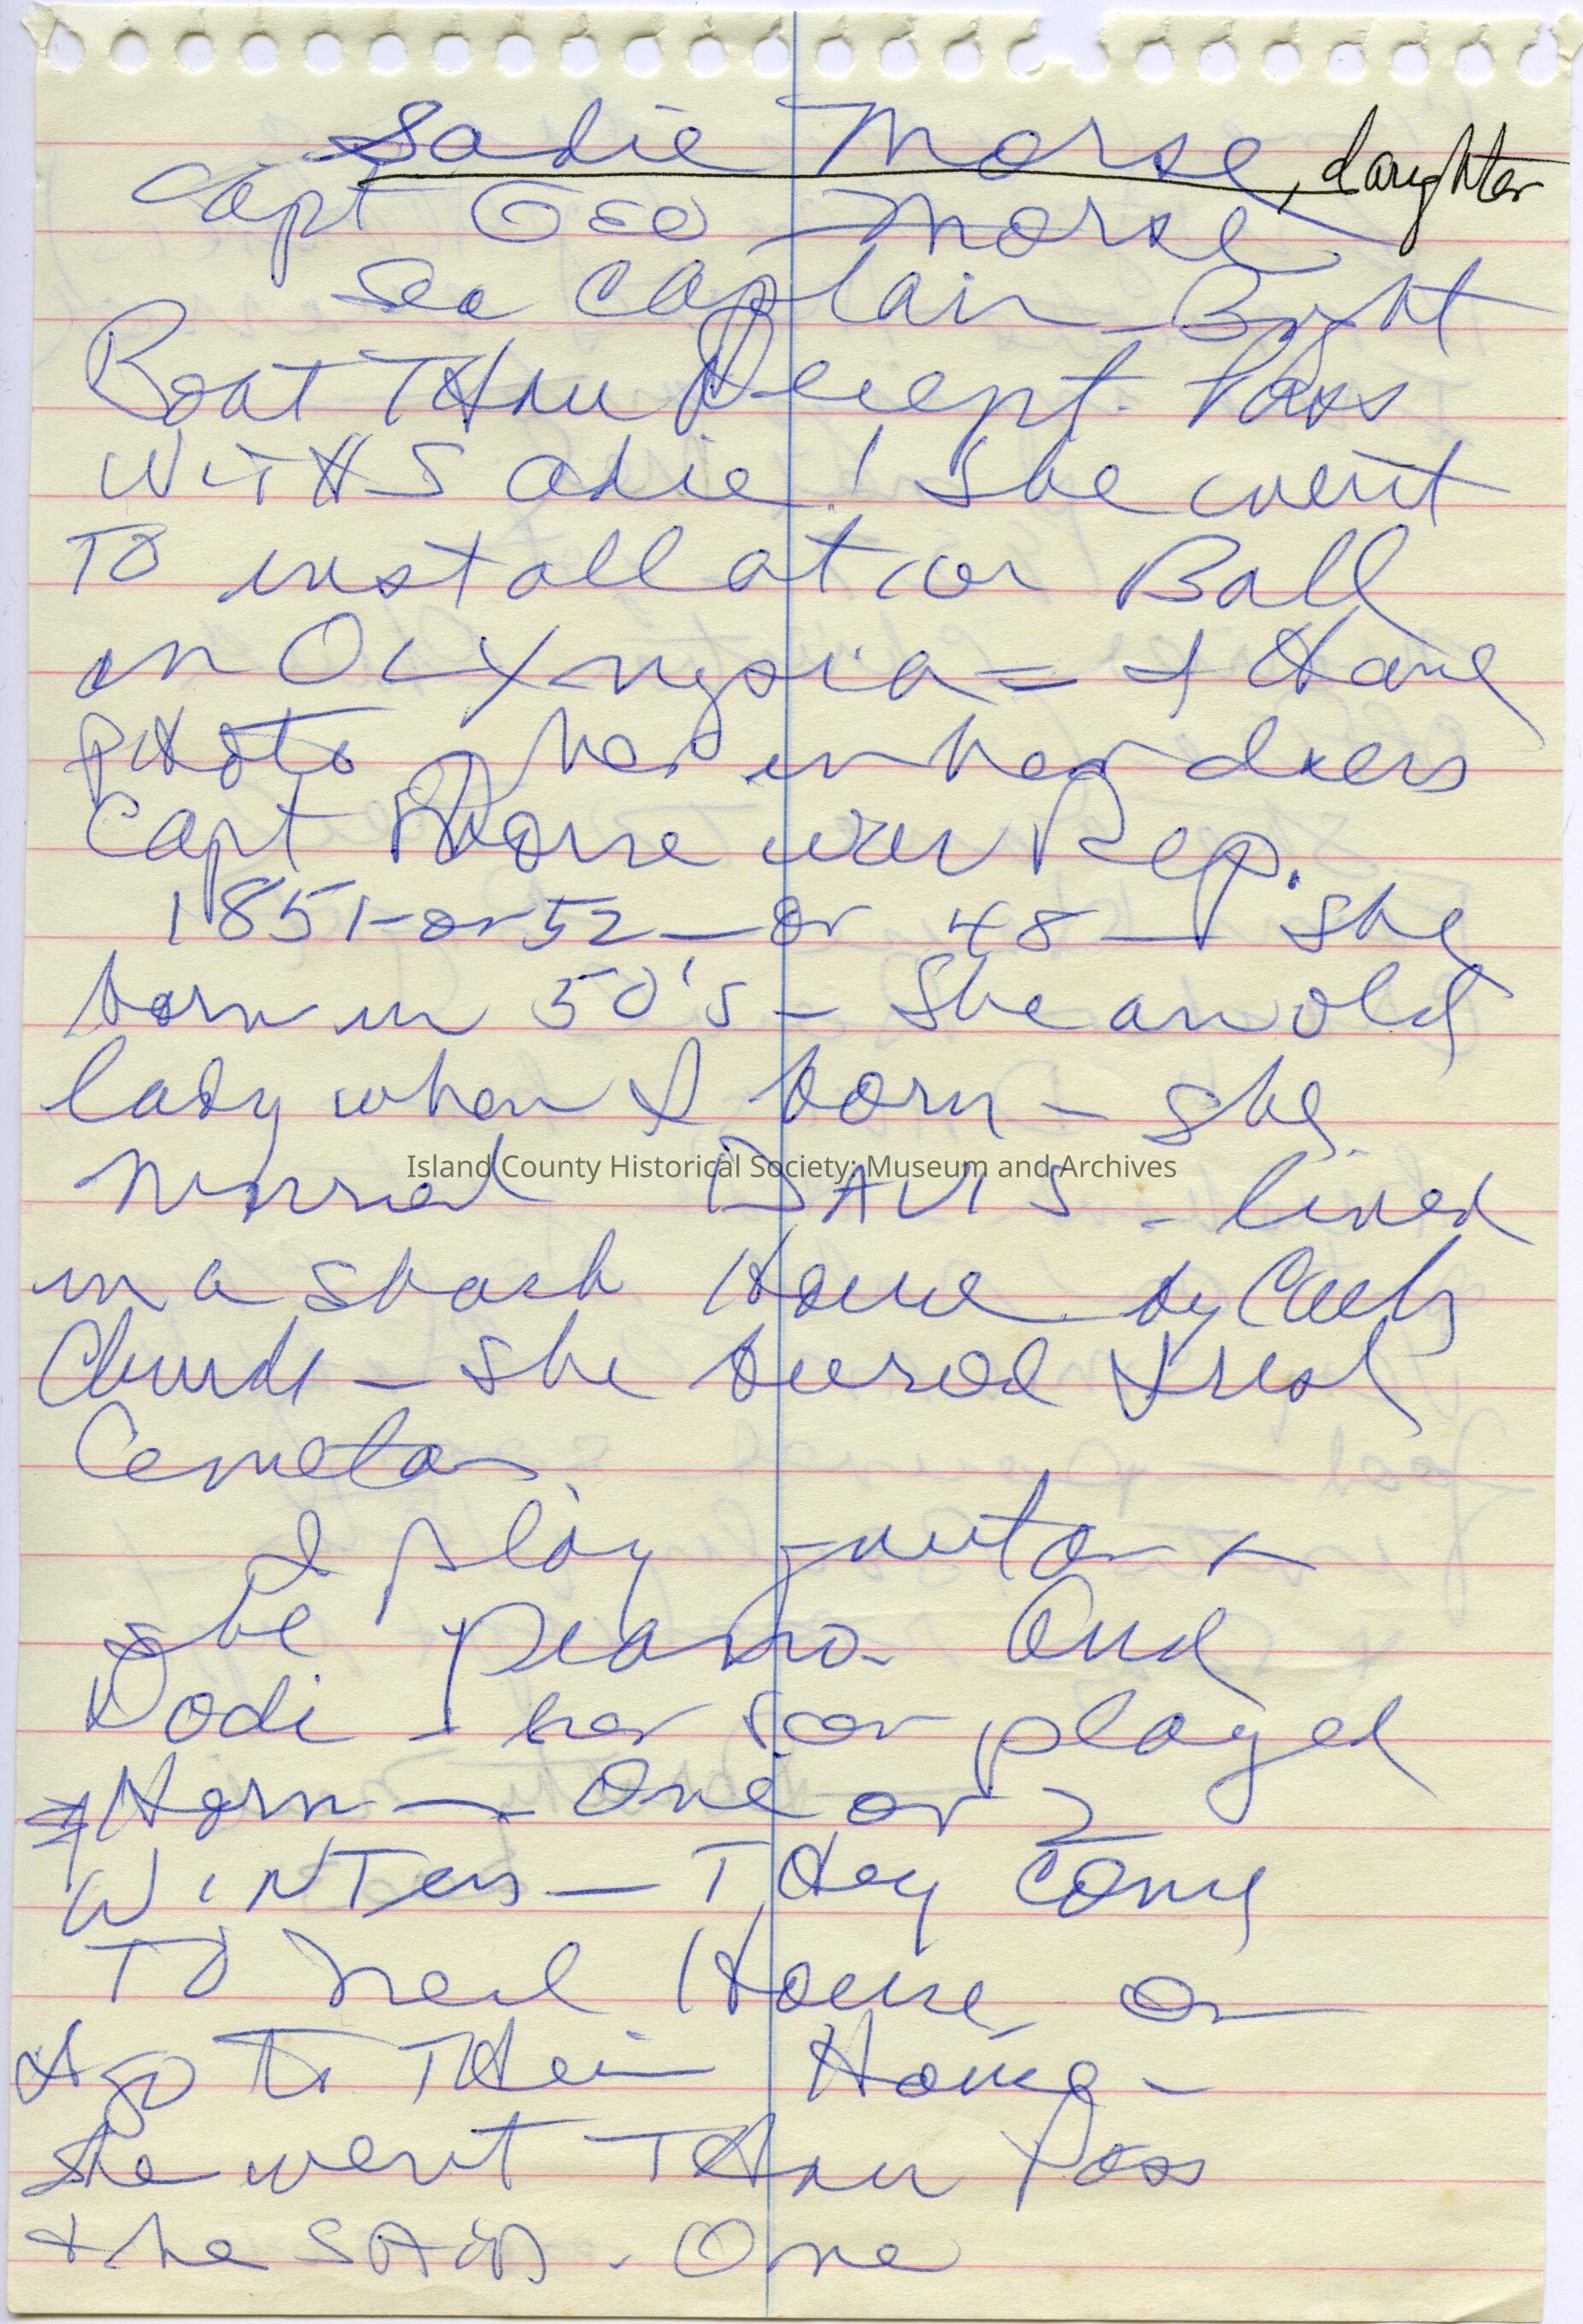 Sadie Morse, daughter
Capt Geo Morse
Sea Captain - Bight
Boat THru Decept. Pass
WiTH Sadie! She went
TO installation Ball
in OLYmpia = I Have
pHoto her in her dress
Capt Morse was Rep.
1851-or 52 - or 48 - she
born in 50's - She an old
lady when I born - she
married DAVIS - lived
in a shack House by Cath
Church - she buried
Cemetar
I play guitar +
she piano. And
Dodi - her son played
Horn - One or 2
WiNTers - THey come
TO neil House or
I go to THeir Home -
She went THru Pass
+ he SAiD. One
Island County Historical Society: Museum and Archives